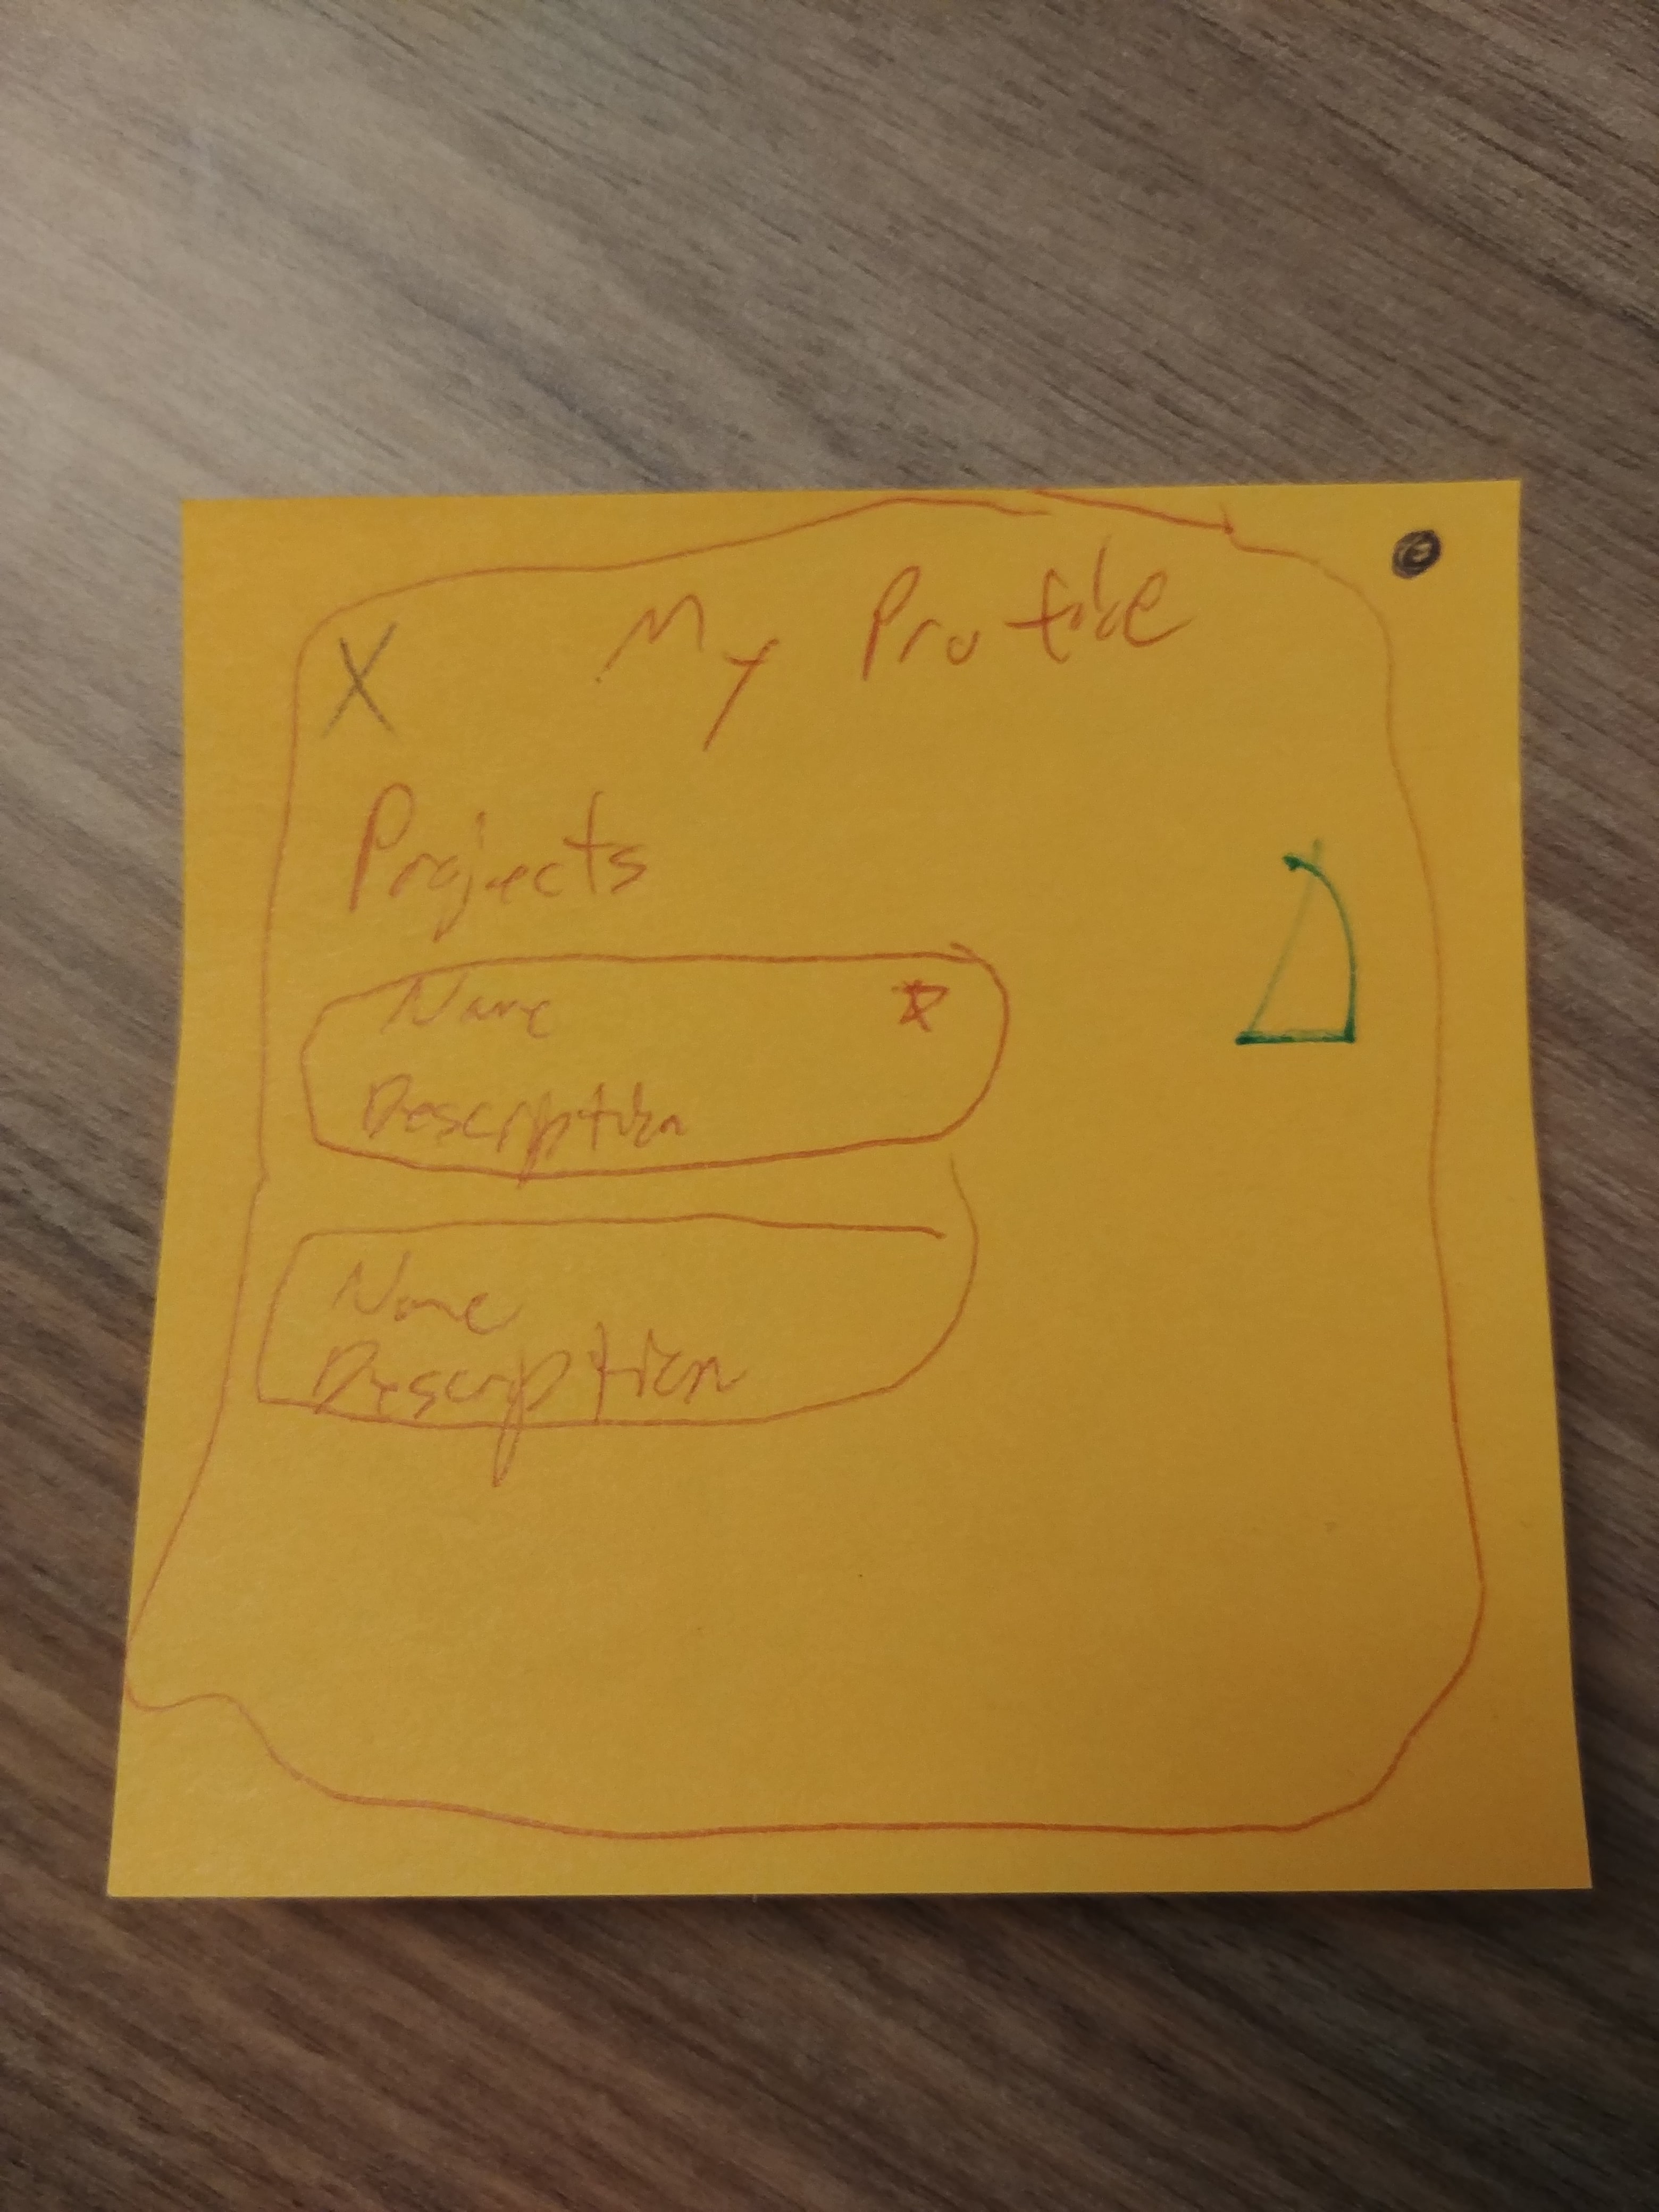 X My Profile
Projects
Name
Description
Name
Description